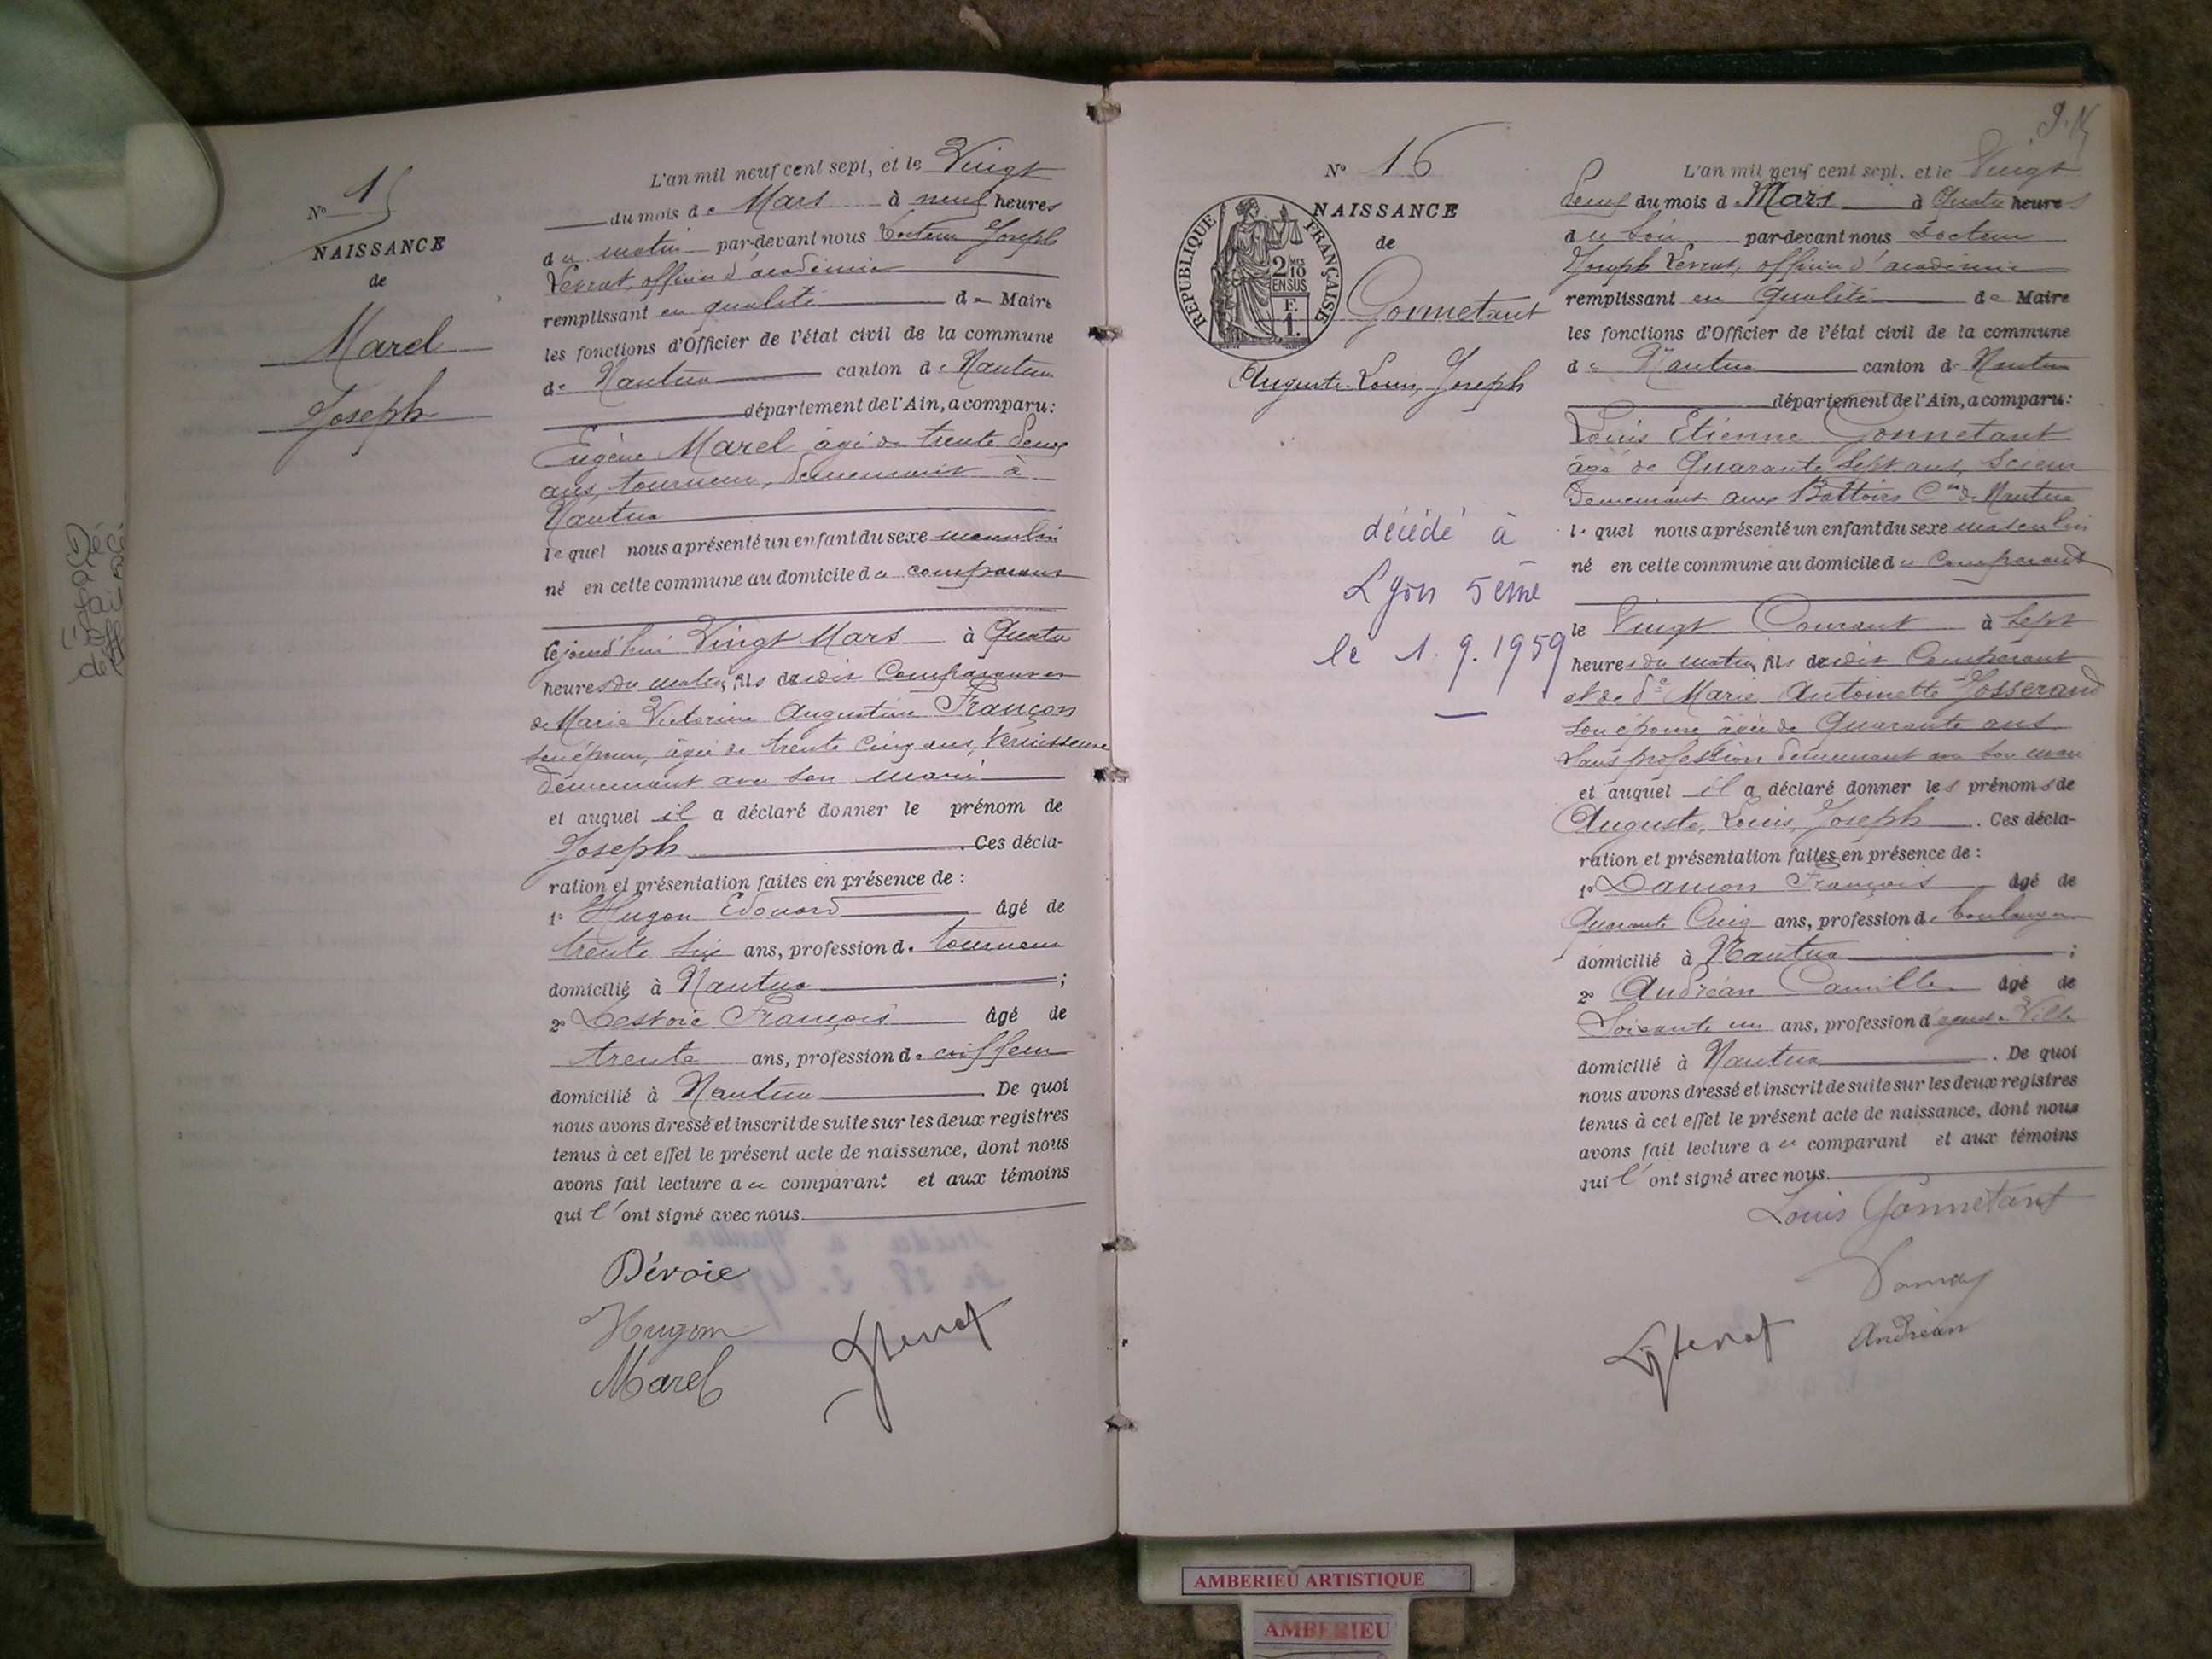 N° 15
NAISSANCE
de
Marel
Joseph
L'an mil neuf cent sept, et le Vingt
du mois de Mars à neuf heures
du matin par-devant nous Docteur Joseph
officier d'académie
remplissant en qualité de Maire
les fonctions d'Officier de l'état civil de la commune
de Nantua canton de Nantua
département de l'Ain, a comparu:
Eugène Marel âgé de trente deux
ans, tourneur, demeurant à
Nantua
lequel nous a présenté un enfant du sexe masculin
né en cette commune au domicile du comparant
lejourd'hui Vingt Mars à Quatre
heures du matin, fils dudit Comparant et
de Marie Victorine Augustine Françon
son épouse, âgée de trente cinq ans, Vernisseuse
demeurant avec son mari
et auquel il a déclaré donner le prénom de
Joseph. Ces décla-
ration et présentation faites en présence de :
1° Hugon Edouard âgé de
trente six ans, profession de tourneur
domicilié à Nantua ;
2° François âgé de
trente ans, profession de coiffeur
domicilié à Nantua. De quoi
nous avons dressé et inscrit de suite sur les deux registres
tenus à cet effet le présent acte de naissance, dont nous
avons fait lecture au comparant et aux témoins
qui l'ont signé avec nous.
Dévoie
Hugon
Marel
N° 16
NAISSANCE
de
REPUBLIQUE FRANÇAISE
2 MES 10 EN SUS
F. 1.
Gonnetant
Auguste Louis, Joseph
décédé à
Lyon 5ème
le 1.9.1959
L'an mil neuf cent sept, et le Vingt
deux du mois de Mars à Quatre heures
du soir par-devant nous Docteur
Joseph officier d'académie
remplissant en qualité de Maire
les fonctions d'Officier de l'état civil de la commune
de Nantua canton de Nantua
département de l'Ain, a comparu:
Louis Etienne Gonnetant
âgé de Quarante sept ans, Scieur
demeurant aux Battoirs Cne de Nantua
lequel nous a présenté un enfant du sexe masculin
né en cette commune au domicile du Comparant
le Vingt Courant à sept
heures du matin, fils dudit Comparant
et de de Marie Antoinette Josserand
son épouse âgée de Quarante ans
sans profession demeurant avec son mari
et auquel il a déclaré donner les prénoms de
Auguste, Louis, Joseph. Ces décla-
ration et présentation faites en présence de :
1° François âgé de
Quarante Cinq ans, profession de boulanger
domicilié à Nantua ;
2° Andréan Camille âgé de
Soixante un ans, profession d'agent de Ville
domicilié à Nantua. De quoi
nous avons dressé et inscrit de suite sur les deux registres
tenus à cet effet le présent acte de naissance, dont nous
avons fait lecture au comparant et aux témoins
qui l'ont signé avec nous.
Louis Gonnetant
Andréan
AMBERIEU ARTISTIQUE
AMBERIEU